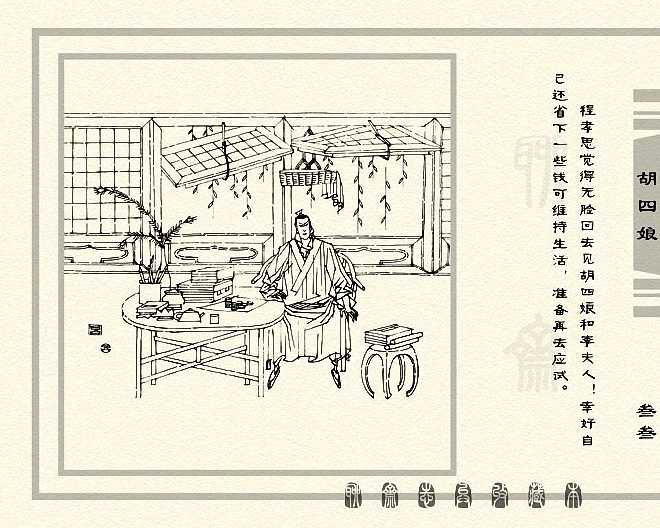 胡四娘
叁叁
程孝思觉得无脸回去见胡四娘和李夫人！幸好自
己还省下一些钱可维持生活，准备再去应试。